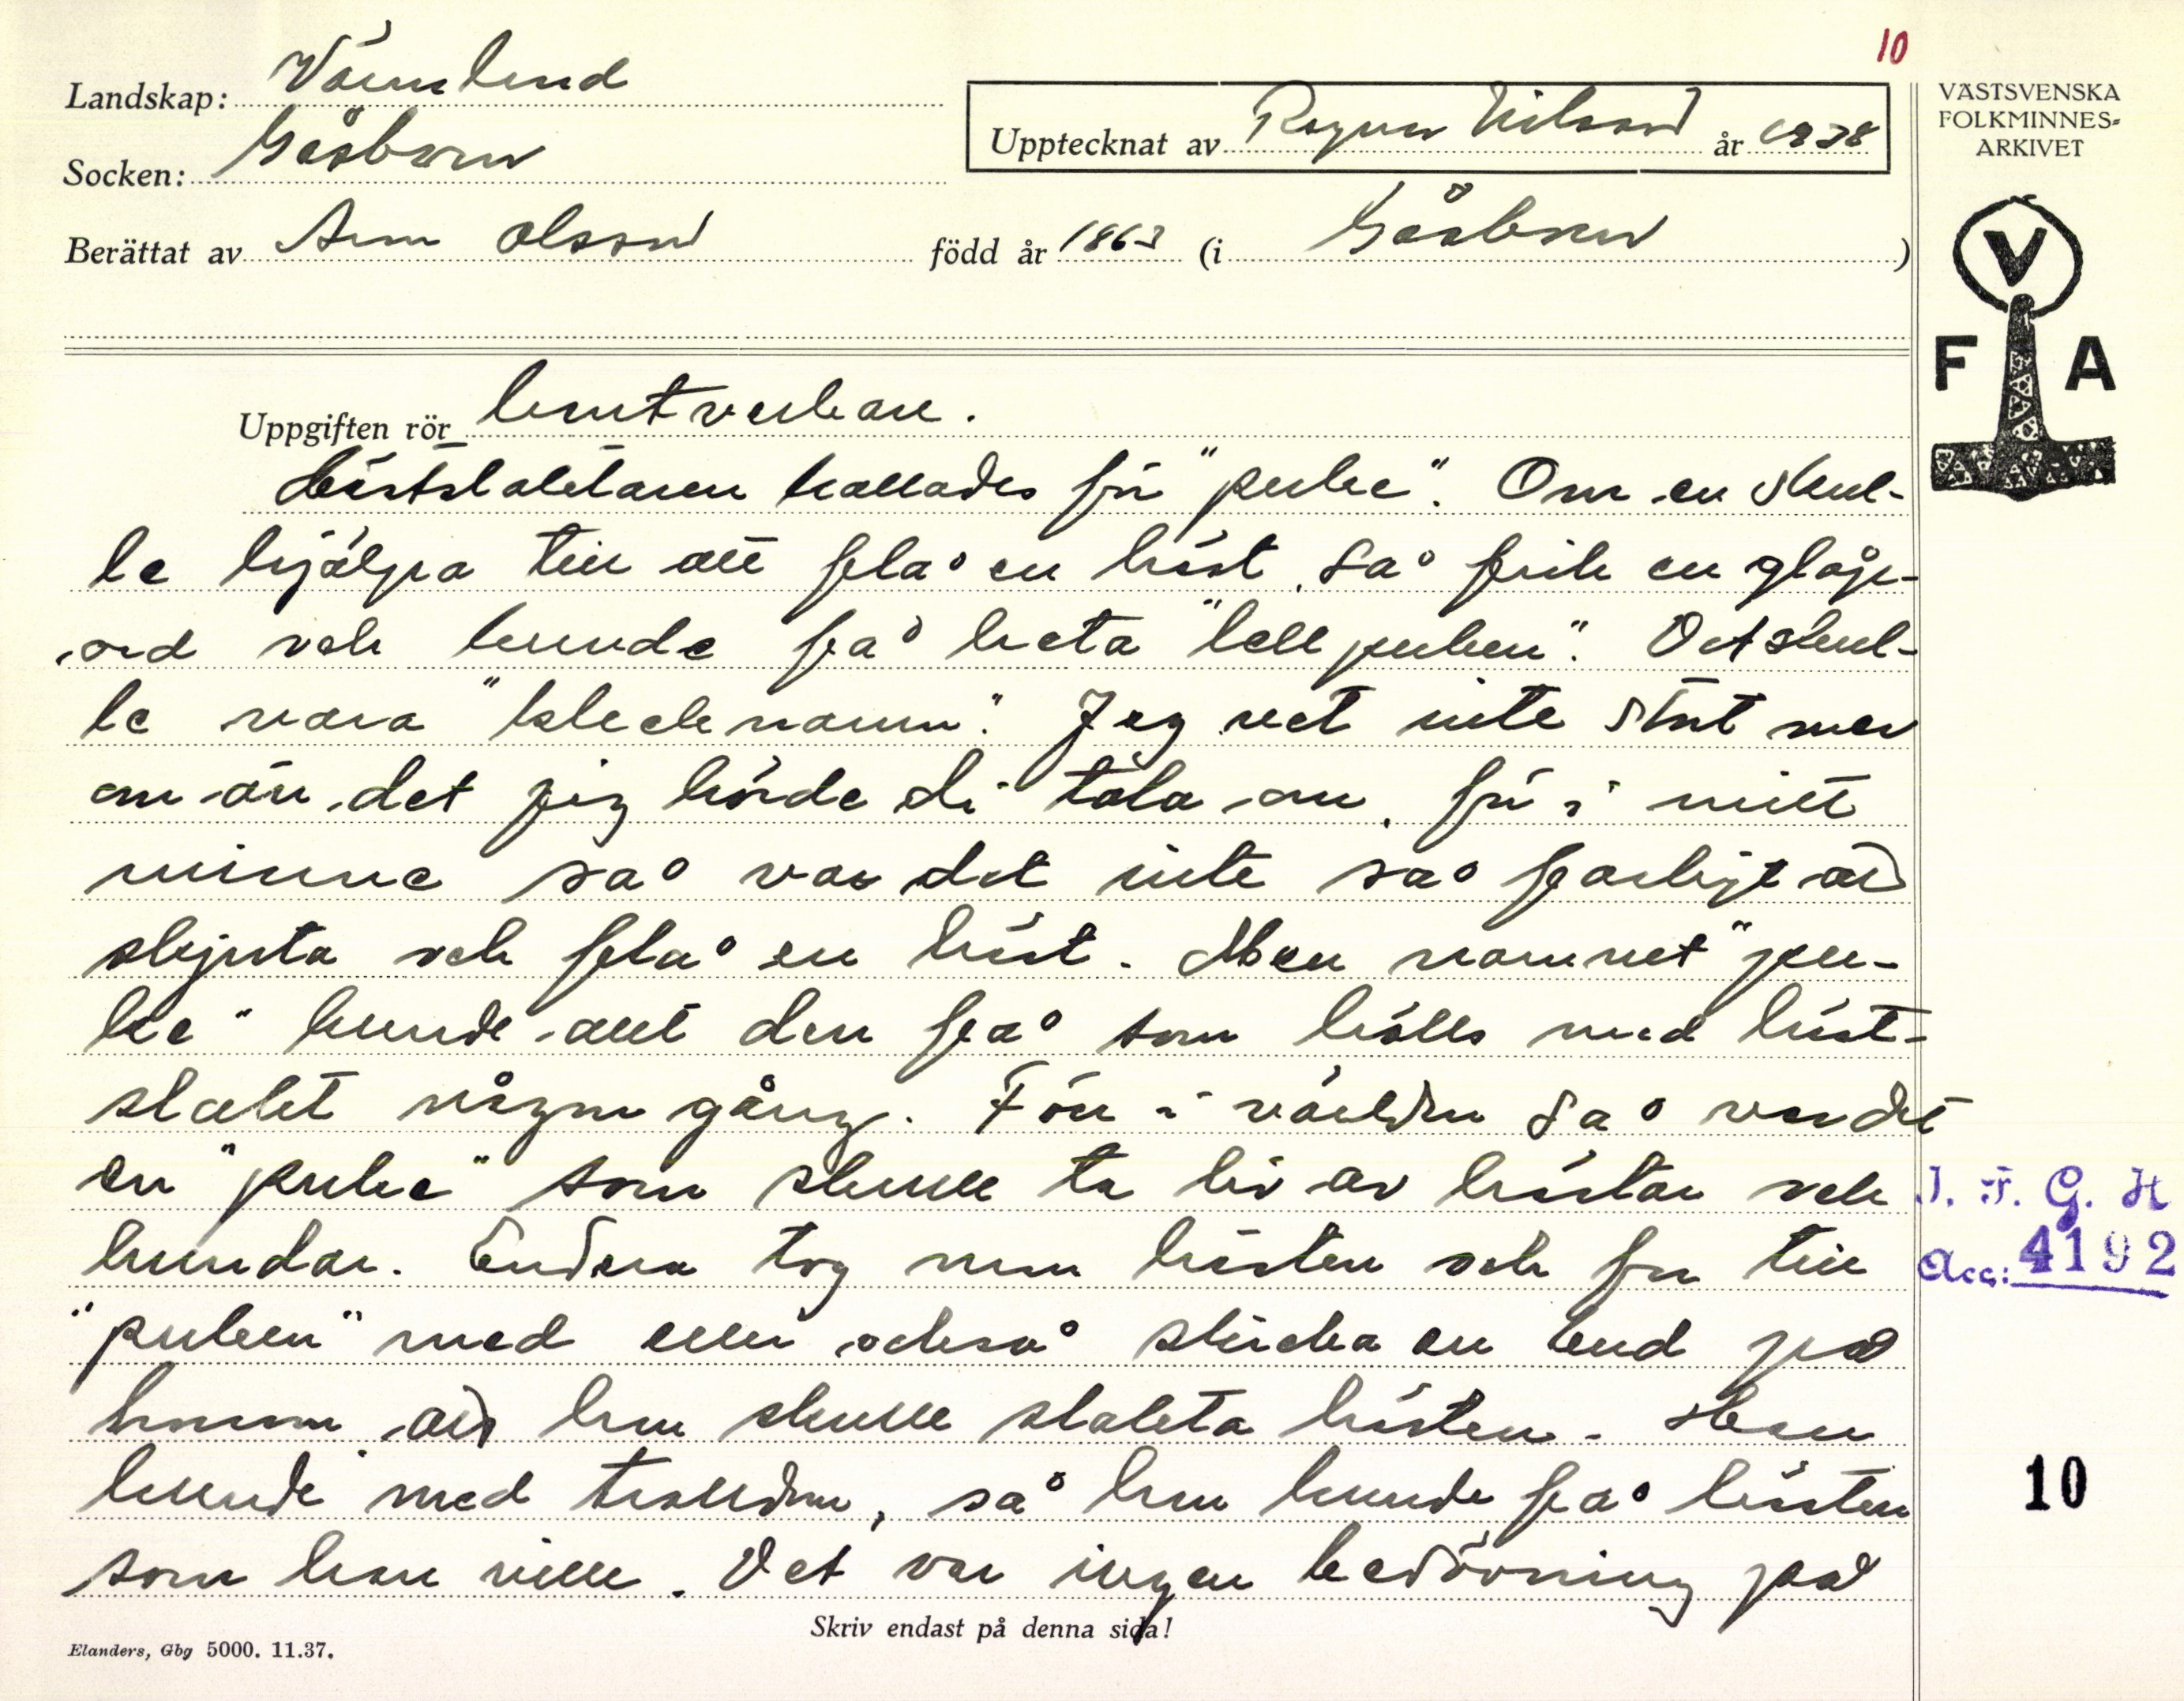 10
Landskap: Värmland
VÄSTSVENSKA
FOLKMINNES=
ARKIVET
Upptecknat av Ragnar Nilsson år 1938
Socken: Gåsborn
Berättat av Arn Olsson född år 1863 (i Gåsborn)
V
F A
Uppgiften rör hantverkare.
Hästslaktaren kallades för "puke". Om en skul-
le hjälpa till att flå en häst, så fick en glåp-
ord och kunde få heta "lell puken". Det skul-
le vara "kleck namn". Jag vet inte stort mer
om än det jag hörde di tala om, för i mitt
minne så var det inte så farligt ad
skjuta och flå en häst. Men namnet "pu-
ke" kunde allt den få som hölls med häst-
slakt någon gång. Förr i världen så var det
en "puke" som skulle ta liv av hästar och
hundar. Endera tog man hästen och for till
"puken" med eller också skicka en bud på
honom ad han skulle slakta hästen. Han
kunde med trolldom, så han kunde få hästen
som han ville. Det var ingen bedövning på
J. F. G. H
Acc: 4192
10
Skriv endast på denna sida!
Elanders, Gbg 5000. 11.37.